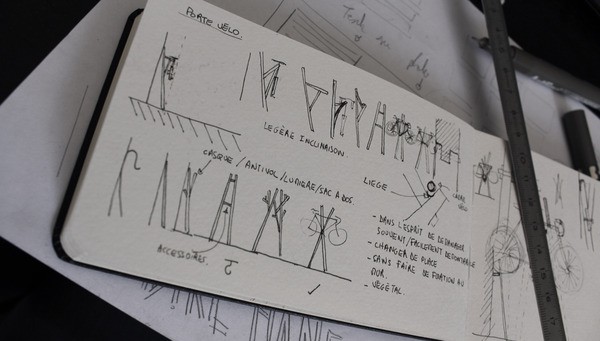 PORTE VÉLO.
LEGÈRE INCLINAISON
CASQUE / ANTIVOL / LUMIÈRE / SAC A DOS.
ACCESSOIRES.
LIEGE
CADRE
VÉLO
- DANS L'ESPRIT DE DEMENAGER
SOUVENT / FACILEMENT DEMONTABLE
- CHANGER DE PLACE
- SANS FAIRE DE FIXATION AU
MUR.
- VÉGÉTAL.